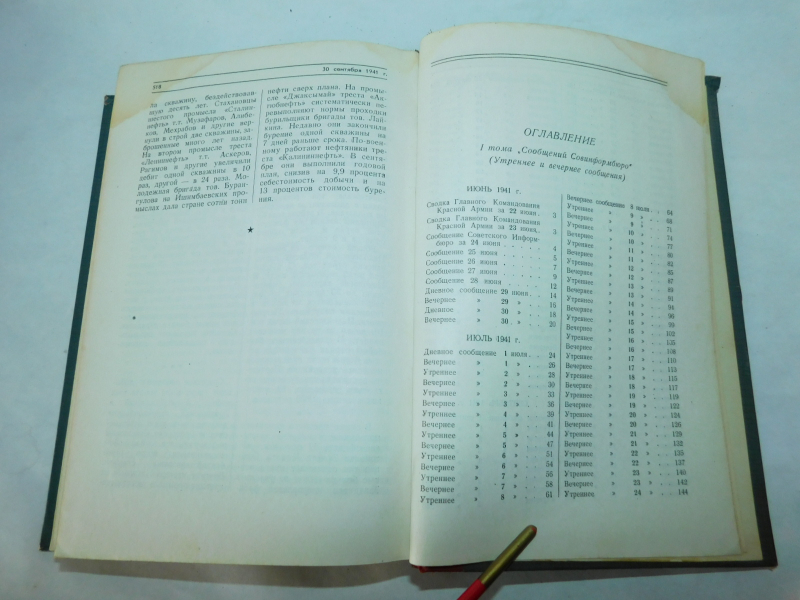 518
30 сентября 1941 г.
ло скважину, бездействовав-
шую десять лет. Стахановцы
шестого промысла «Сталин-
нефть» т.т. Музафаров, Алибе-
ков, Мехрабов и другие вер-
нули в строй две скважины, за-
брошенные много лет назад.
На втором промысле треста
«Лениннефть» т.т. Аскеров,
Рагимов и другие увеличили
дебит одной скважины в 10
раз, другой — в 24 раза. Мо-
лодежная бригада тов. Буран-
гулова на Ишимбаевских про-
мыслах дала стране сотни тонн
нефти сверх плана. На промы-
сле «Джаксымай» треста «Ак-
тюбнефть» систематически пе-
ревыполняют нормы проходки
бурильщики бригады тов.
Недавно они закончили
бурение одной скважины на
7 дней раньше срока. По-воен-
ному работают нефтяники тре-
ста «Калининнефть». В сентя-
бре они выполнили годовой
план, снизив на 9,9 процента
себестоимость добычи и на
13 процентов стоимость буре-
ния.
ОГЛАВЛЕНИЕ
I тома „Сообщений Совинформбюро“
(Утреннее и вечернее сообщения)
ИЮНЬ 1941 г.
Сводка Главного Командования
Красной Армии за 22 июня . 3
Сводка Главного Командования
Красной Армии за 23 июня . 3
Сообщение Советского Информ-
бюро за 24 июня . . . . . 4
Сообщение 25 июня . . . . . 5
Сообщение 26 июня . . . . . 7
Сообщение 27 июня . . . . . 9
Сообщение 28 июня . . . . . 12
Дневное сообщение 29 июня . . 14
Вечернее » 29 » . . 16
Дневное » 30 » . . 18
Вечернее » 30 » . . 20
ИЮЛЬ 1941 г.
Дневное сообщение 1 июля . . 24
Вечернее » 1 » . . 26
Утреннее » 2 » . . 28
Вечернее » 2 » . . 30
Утреннее » 3 » . . 33
Вечернее » 3 » . . 36
Утреннее » 4 » . . 39
Вечернее » 4 » . . 41
Утреннее » 5 » . . 44
Вечернее » 5 » . . 47
Утреннее » 6 » . . 51
Вечернее » 6 » . . 54
Утреннее » 7 » . . 56
Вечернее » 7 » . . 58
Утреннее » 8 » . . 61
Вечернее сообщение 8 июля . . 64
Утреннее » 9 » . . 68
Вечернее » 9 » . . 71
Утреннее » 10 » . . 74
Вечернее » 10 » . . 77
Утреннее » 11 » . . 80
Вечернее » 11 » . . 82
Утреннее » 12 » . . 85
Вечернее » 12 » . . 87
Утреннее » 13 » . . 89
Вечернее » 13 » . . 91
Утреннее » 14 » . . 94
Вечернее » 14 » . . 96
Утреннее » 15 » . . 99
Вечернее » 15 » . . 102
Утреннее » 16 » . . 105
Вечернее » 16 » . . 108
Утреннее » 17 » . . 110
Вечернее » 17 » . . 113
Утреннее » 18 » . . 115
Вечернее » 18 » . . 117
Утреннее » 19 » . . 119
Вечернее » 19 » . . 122
Утреннее » 20 » . . 124
Вечернее » 20 » . . 126
Утреннее » 21 » . . 129
Вечернее » 21 » . . 132
Утреннее » 22 » . . 135
Вечернее » 22 » . . 137
Утреннее » 23 » . . 140
Вечернее » 23 » . . 142
Утреннее » 24 » . . 144